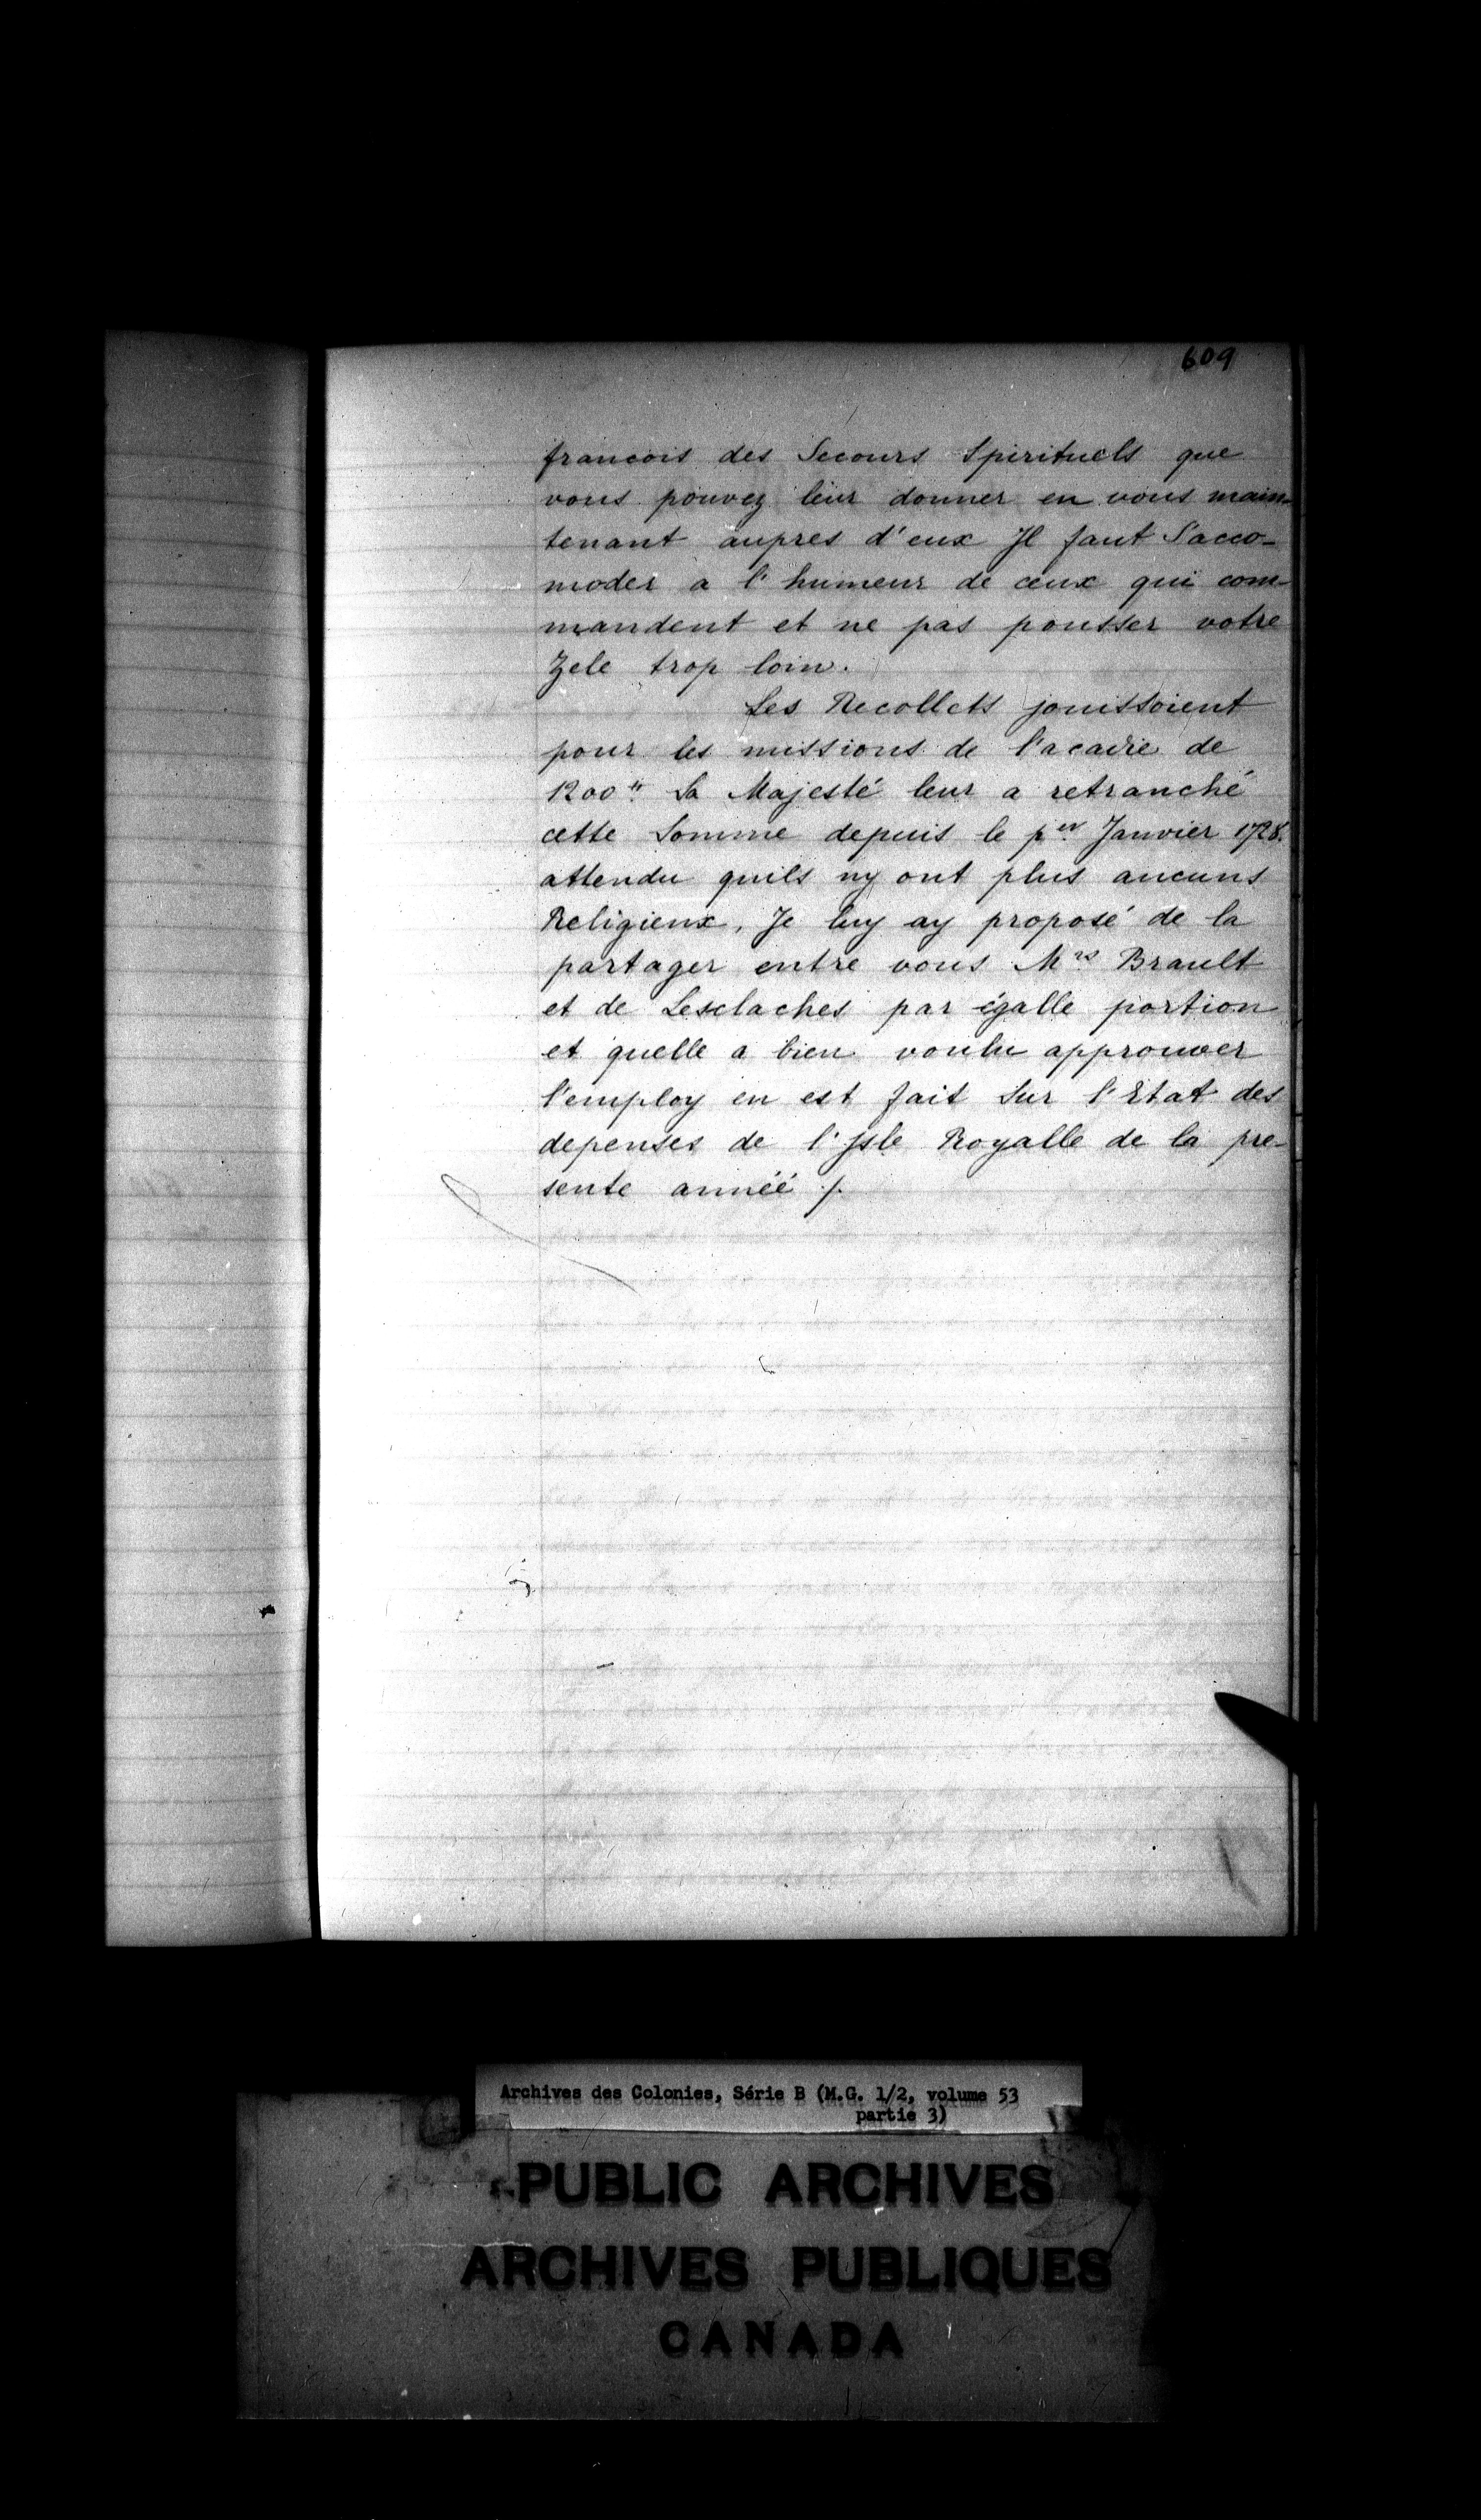 609
francois des Secours Spirituels que
vous pouvez leur donner en vous main-
tenant aupres d'eux Il faut S'acco-
moder a l'humeur de ceux qui com-
mandent et ne pas pousser votre
Zele trop loin.
Les Recollets jouissoient
pour les missions de l'acadie de
1200tt. Sa Majesté leur a retranché
cette Somme depuis le per Janvier 1728.
attendu quils ny ont plus aucuns
Religieux, Je luy ay proposé de la
partager entre vous Mrs Brault
et de Lesclaches par égalle portion
et quelle a bien voulu approuver
l'employ en est fait Sur l'Etat des
depenses de l'Isle Royalle de la pre-
sente annéé ./.
Archives des Colonies, Série B (M.G. 1/2, volume 53
partie 3)
PUBLIC ARCHIVES
ARCHIVES PUBLIQUES
CANADA